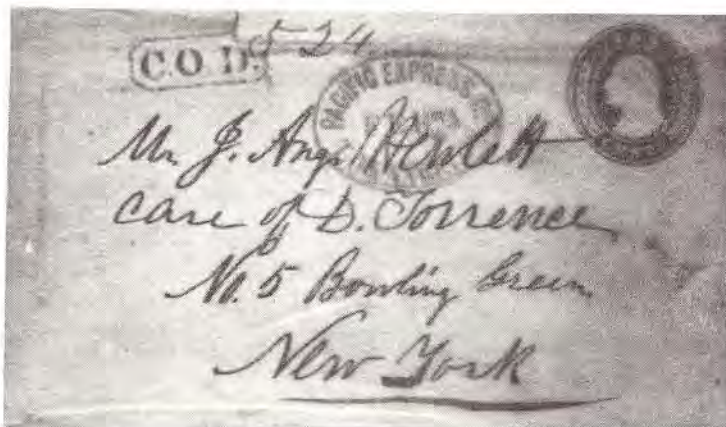 C.O.D. 524
PACIFIC EXPRESS
Mr J. Aug. Hewlett
care of D. Torrence
No. 5 Bowling Green
New York